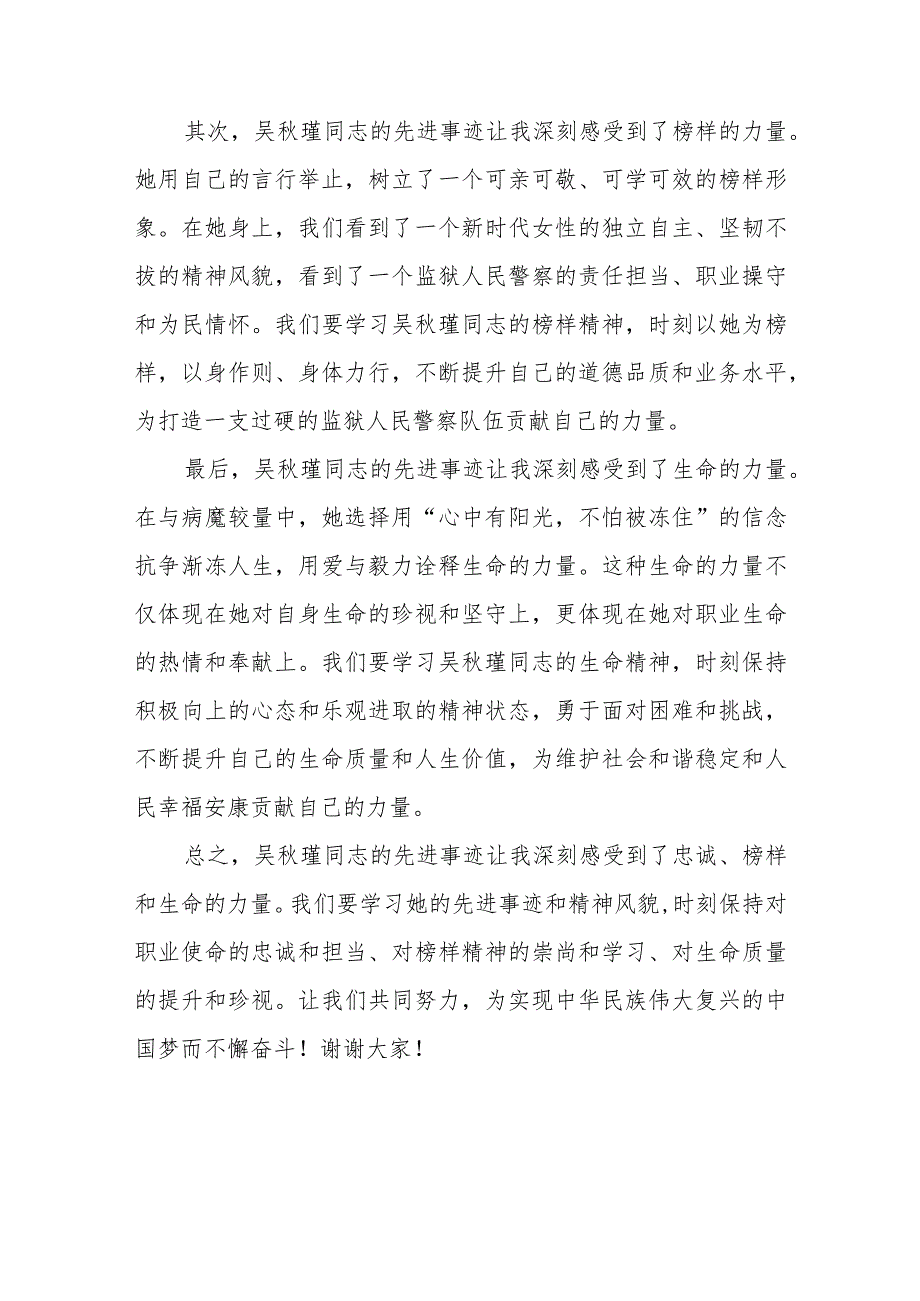 其次，吴秋瑾同志的先进事迹让我深刻感受到了榜样的力量。
她用自己的言行举止，树立了一个可亲可敬、可学可效的榜样形
象。在她身上，我们看到了一个新时代女性的独立自主、坚韧不
拔的精神风貌，看到了一个监狱人民警察的责任担当、职业操守
和为民情怀。我们要学习吴秋瑾同志的榜样精神，时刻以她为榜
样，以身作则、身体力行，不断提升自己的道德品质和业务水平，
为打造一支过硬的监狱人民警察队伍贡献自己的力量。
最后，吴秋瑾同志的先进事迹让我深刻感受到了生命的力量。
在与病魔较量中，她选择用“心中有阳光，不怕被冻住”的信念
抗争渐冻人生，用爱与毅力诠释生命的力量。这种生命的力量不
仅体现在她对自身生命的珍视和坚守上，更体现在她对职业生命
的热情和奉献上。我们要学习吴秋瑾同志的生命精神，时刻保持
积极向上的心态和乐观进取的精神状态，勇于面对困难和挑战，
不断提升自己的生命质量和人生价值，为维护社会和谐稳定和人
民幸福安康贡献自己的力量。
总之，吴秋瑾同志的先进事迹让我深刻感受到了忠诚、榜样
和生命的力量。我们要学习她的先进事迹和精神风貌,时刻保持对
职业使命的忠诚和担当、对榜样精神的崇尚和学习、对生命质量
的提升和珍视。让我们共同努力，为实现中华民族伟大复兴的中
国梦而不懈奋斗！谢谢大家！